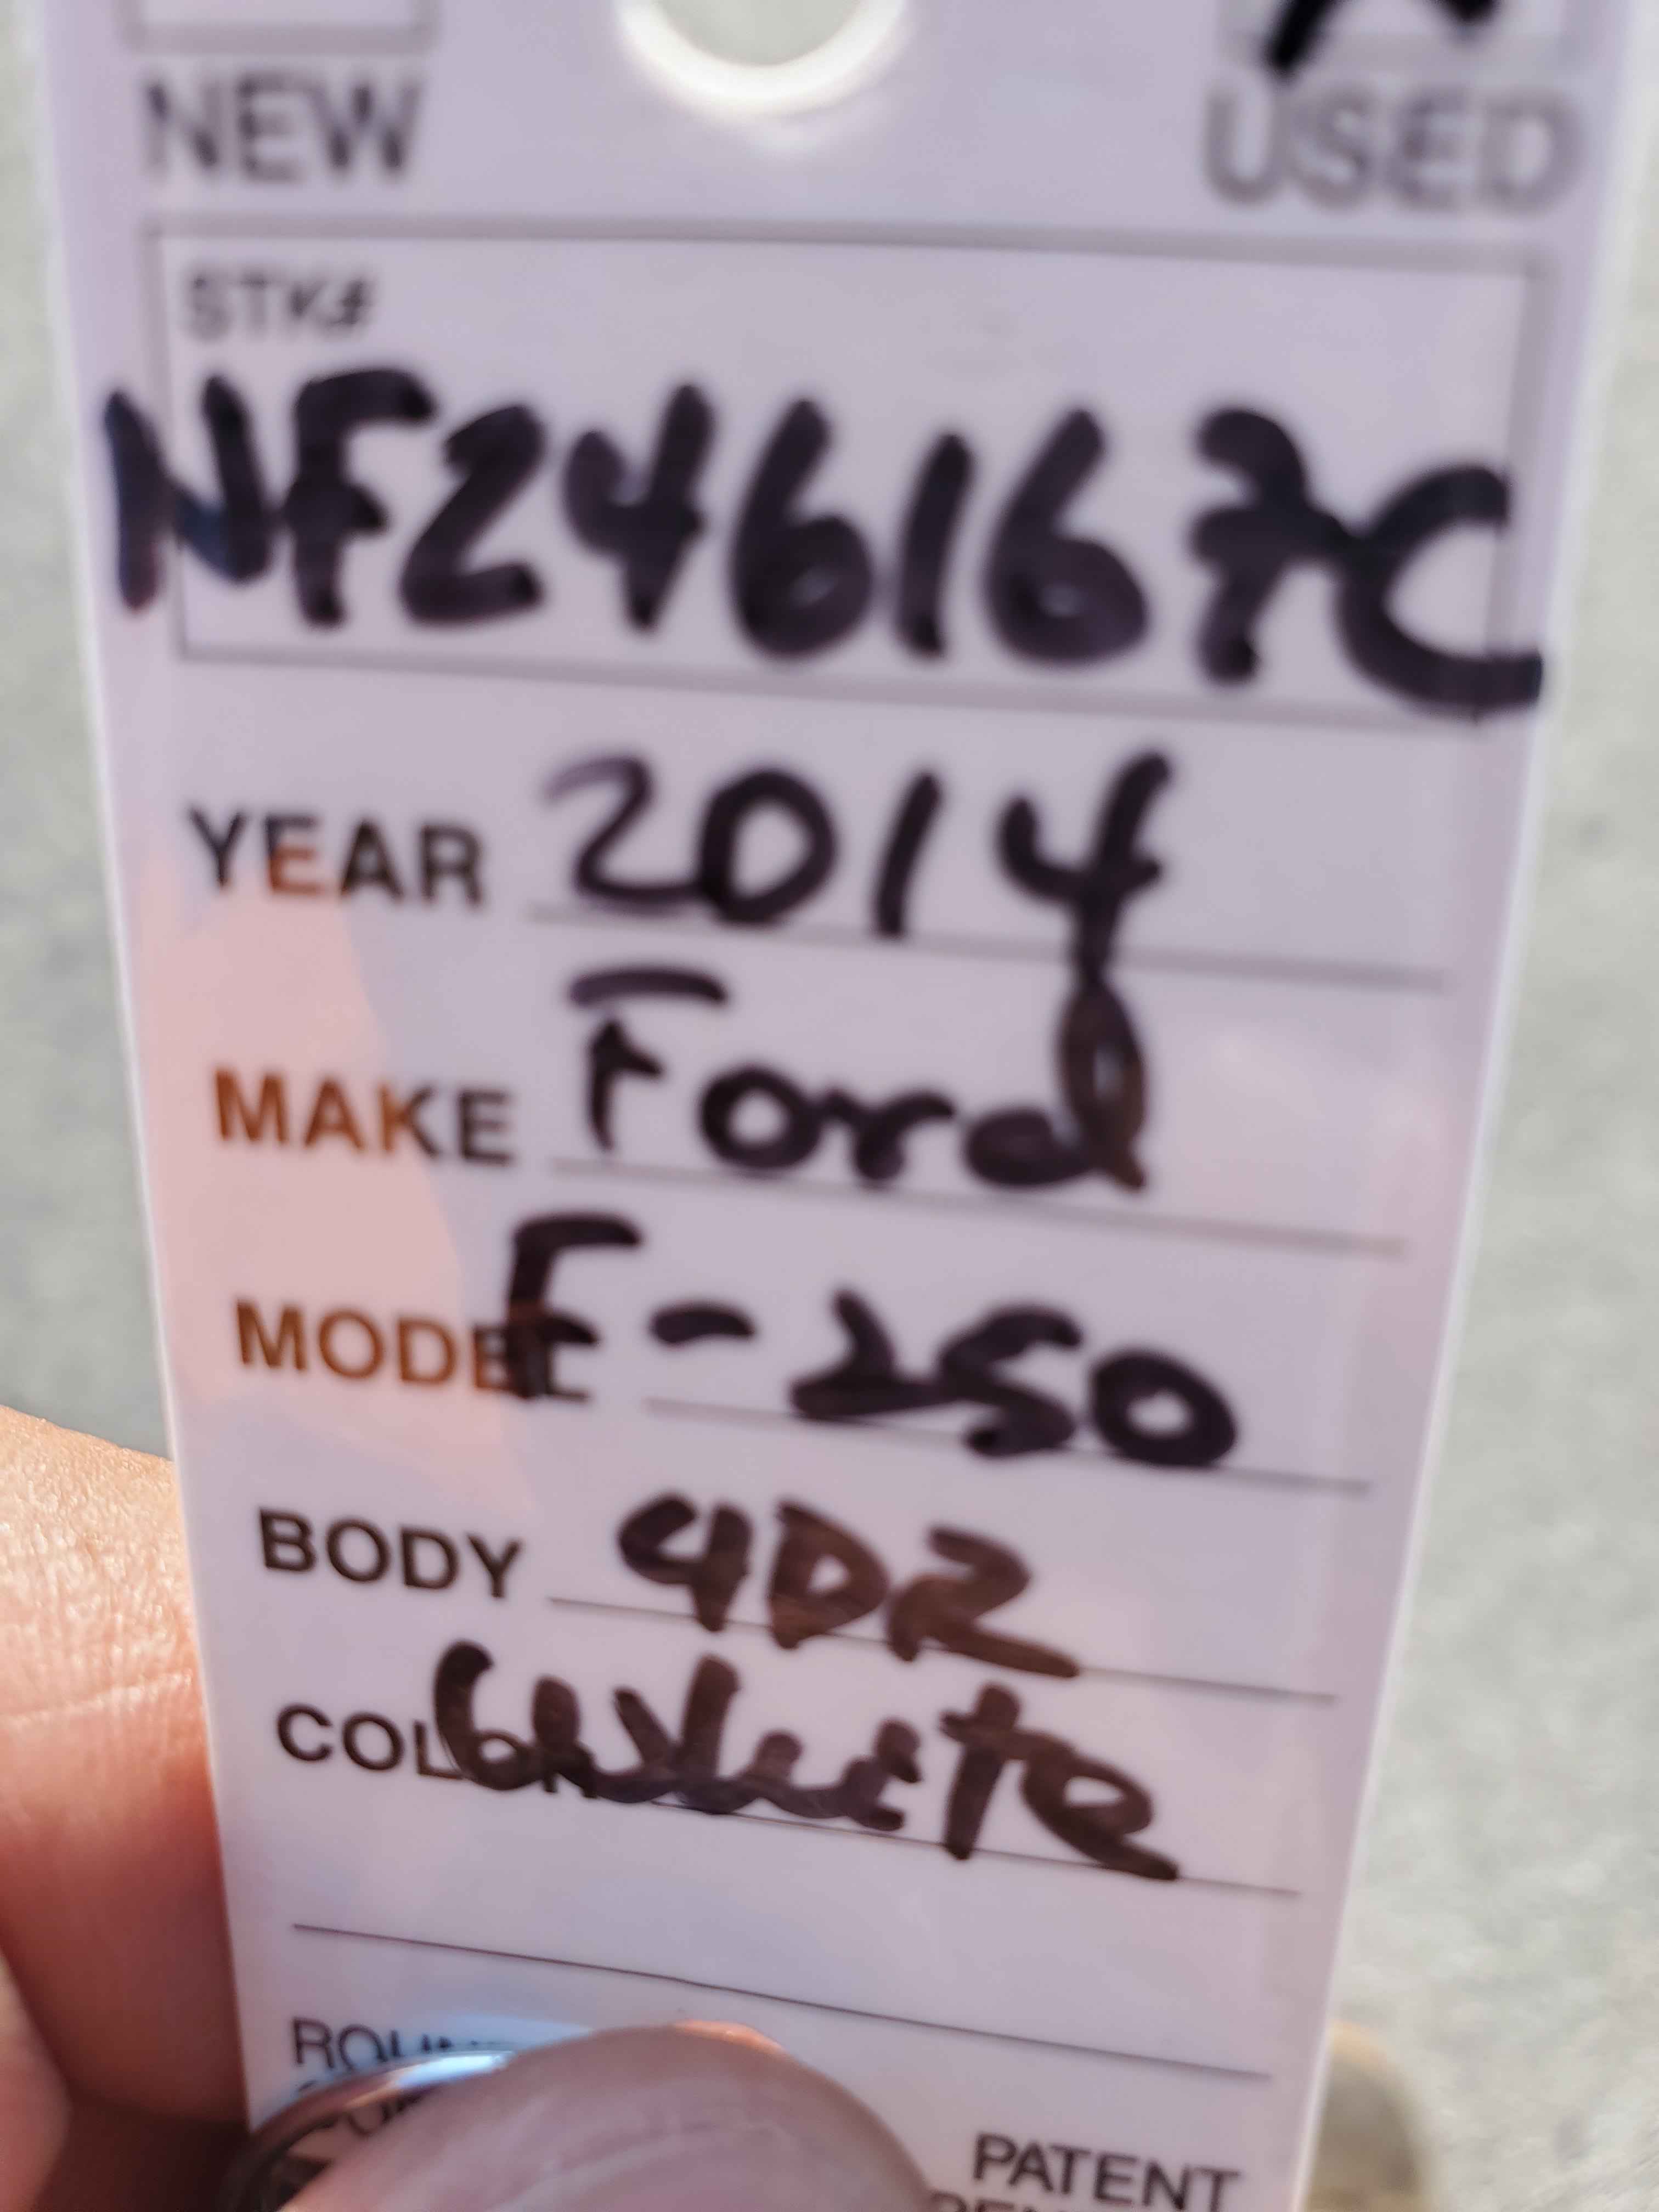 NEW USED
STK#
NF246167C
YEAR 2014
MAKE Ford
MODEL F-250
BODY 4DR
COLOR White
PATENT